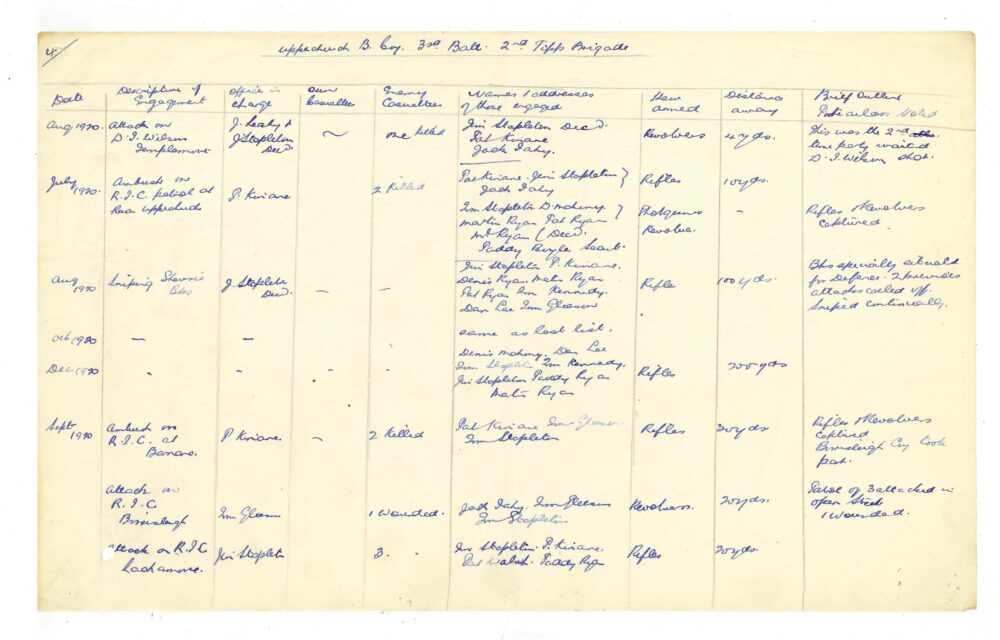 4/
Uppechurch B. Coy. 3rd Batt. 2nd Tipps Brigade
Date
Description of
Engagement
Officer in
charge
Our
Casualties
Enemy
Casualties
Names & addresses
of those engaged
How
armed
Distance
away
Brief outline
Particulars Noted
Aug 1920.
Attack on
D. I. Wilson
Templemore
J. Leahy &
J Stapleton
Decd.
~
one killed
Jim Stapleton Decd.
Pat Kinane
Jack Fahy.
Revolvers
4 yds.
This was the 2nd
time party waited
D. I. Wilson shot.
July
1920.
Ambush on
R.I.C. patrol at
Rear Uppechurch
P. Kinane.
2 Killed
Pat Kinane. Jim Stapleton }
Jack Fahy
Rifles
10 yds.
Jim Stapleton D. mohiney. }
martin Ryan Pat Ryan
Mt Ryan ( Decd.
Paddy Boyle Scout.
Shotguns
Revolve.
-
Rifles & Revolvers
Captured.
Aug
1920
Sniping Shevrie
Bks
J. Stapleton
Decd.
-
-
Jim Stapleton P. Kinane.
Denis Ryan. Matn Ryan
Pat Ryan Jim Kennedy.
Dan Lee Jim Gleeson
Rifle
100 yds.
Bks specially situated
for Defence. 2 previous
attacks called off.
Sniped continually.
Oct 1920
-
-
same as last list.
Dec 1920
"
-
-
-
Denis mohiney. Dan Lee
Jim Stapleton Jim Kennedy.
Jim Stapleton Paddy Ryan
Matn Ryan
Rifles
200 yds
Sept
1920
Ambush on
R.I.C. at
Barnane.
P Kinane.
~
2 Killed
Pat Kinane Jim Gleeson
Jim Stapleton
Rifles
30 yds.
Rifles & Revolvers
captured
Borrisleigh Coy took
part.
Attack on
R.I.C
Borrisleigh
Jim Gleeson
1 wounded.
Jack Fahy. Jim Gleeson
Jim Stapleton
Revolvers.
20 yds.
Patrol of 3 attacked in
open Street
1 Wounded.
Attack on R.I.C
Lackamore.
Jim Stapleton
3.
Jim Stapleton. P. Kinane.
Pat Walsh. Paddy Ryan
Rifles
20 yds.